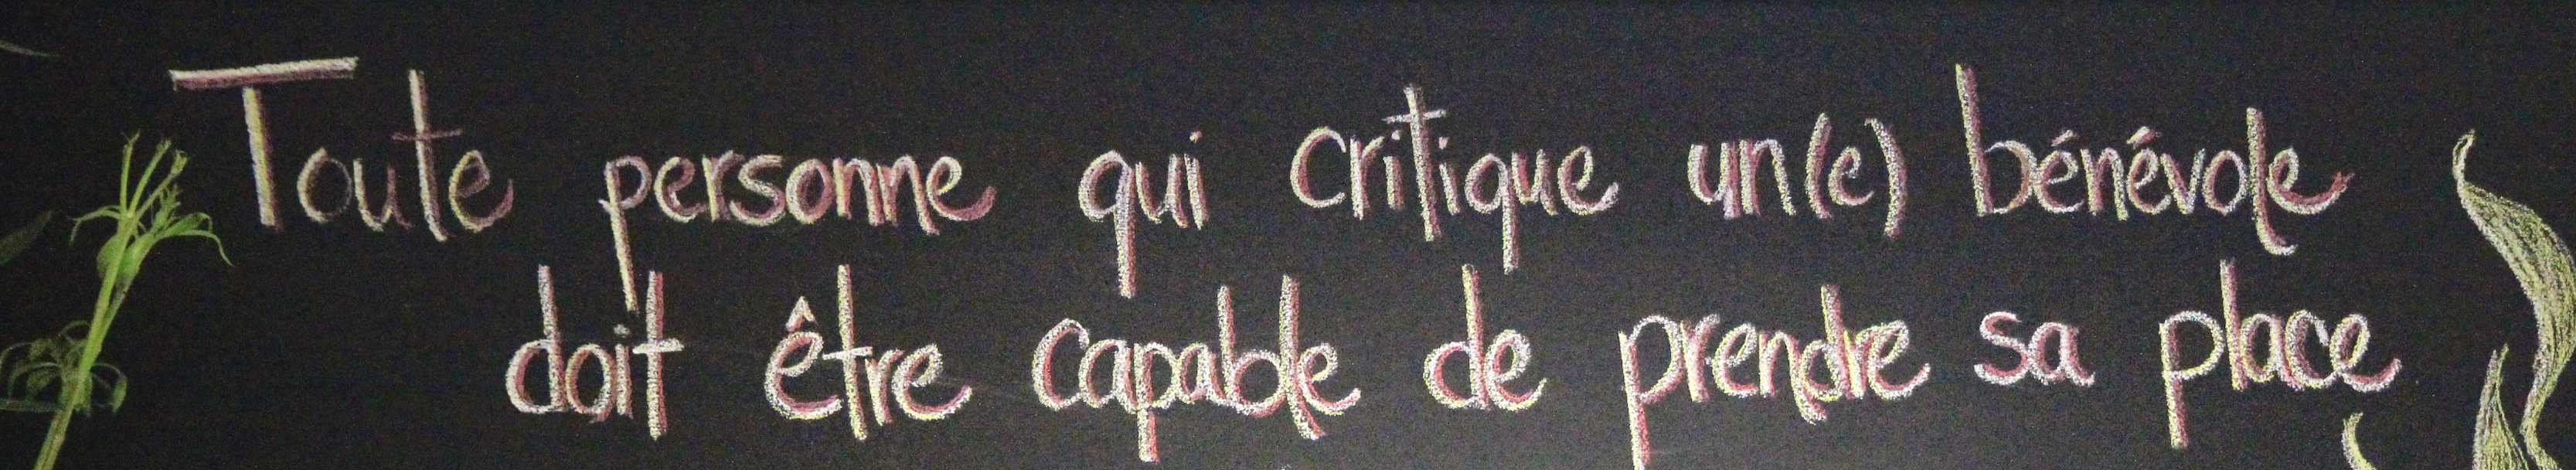 Toute personne qui critique un(e) bénévole
doit être capable de prendre sa place